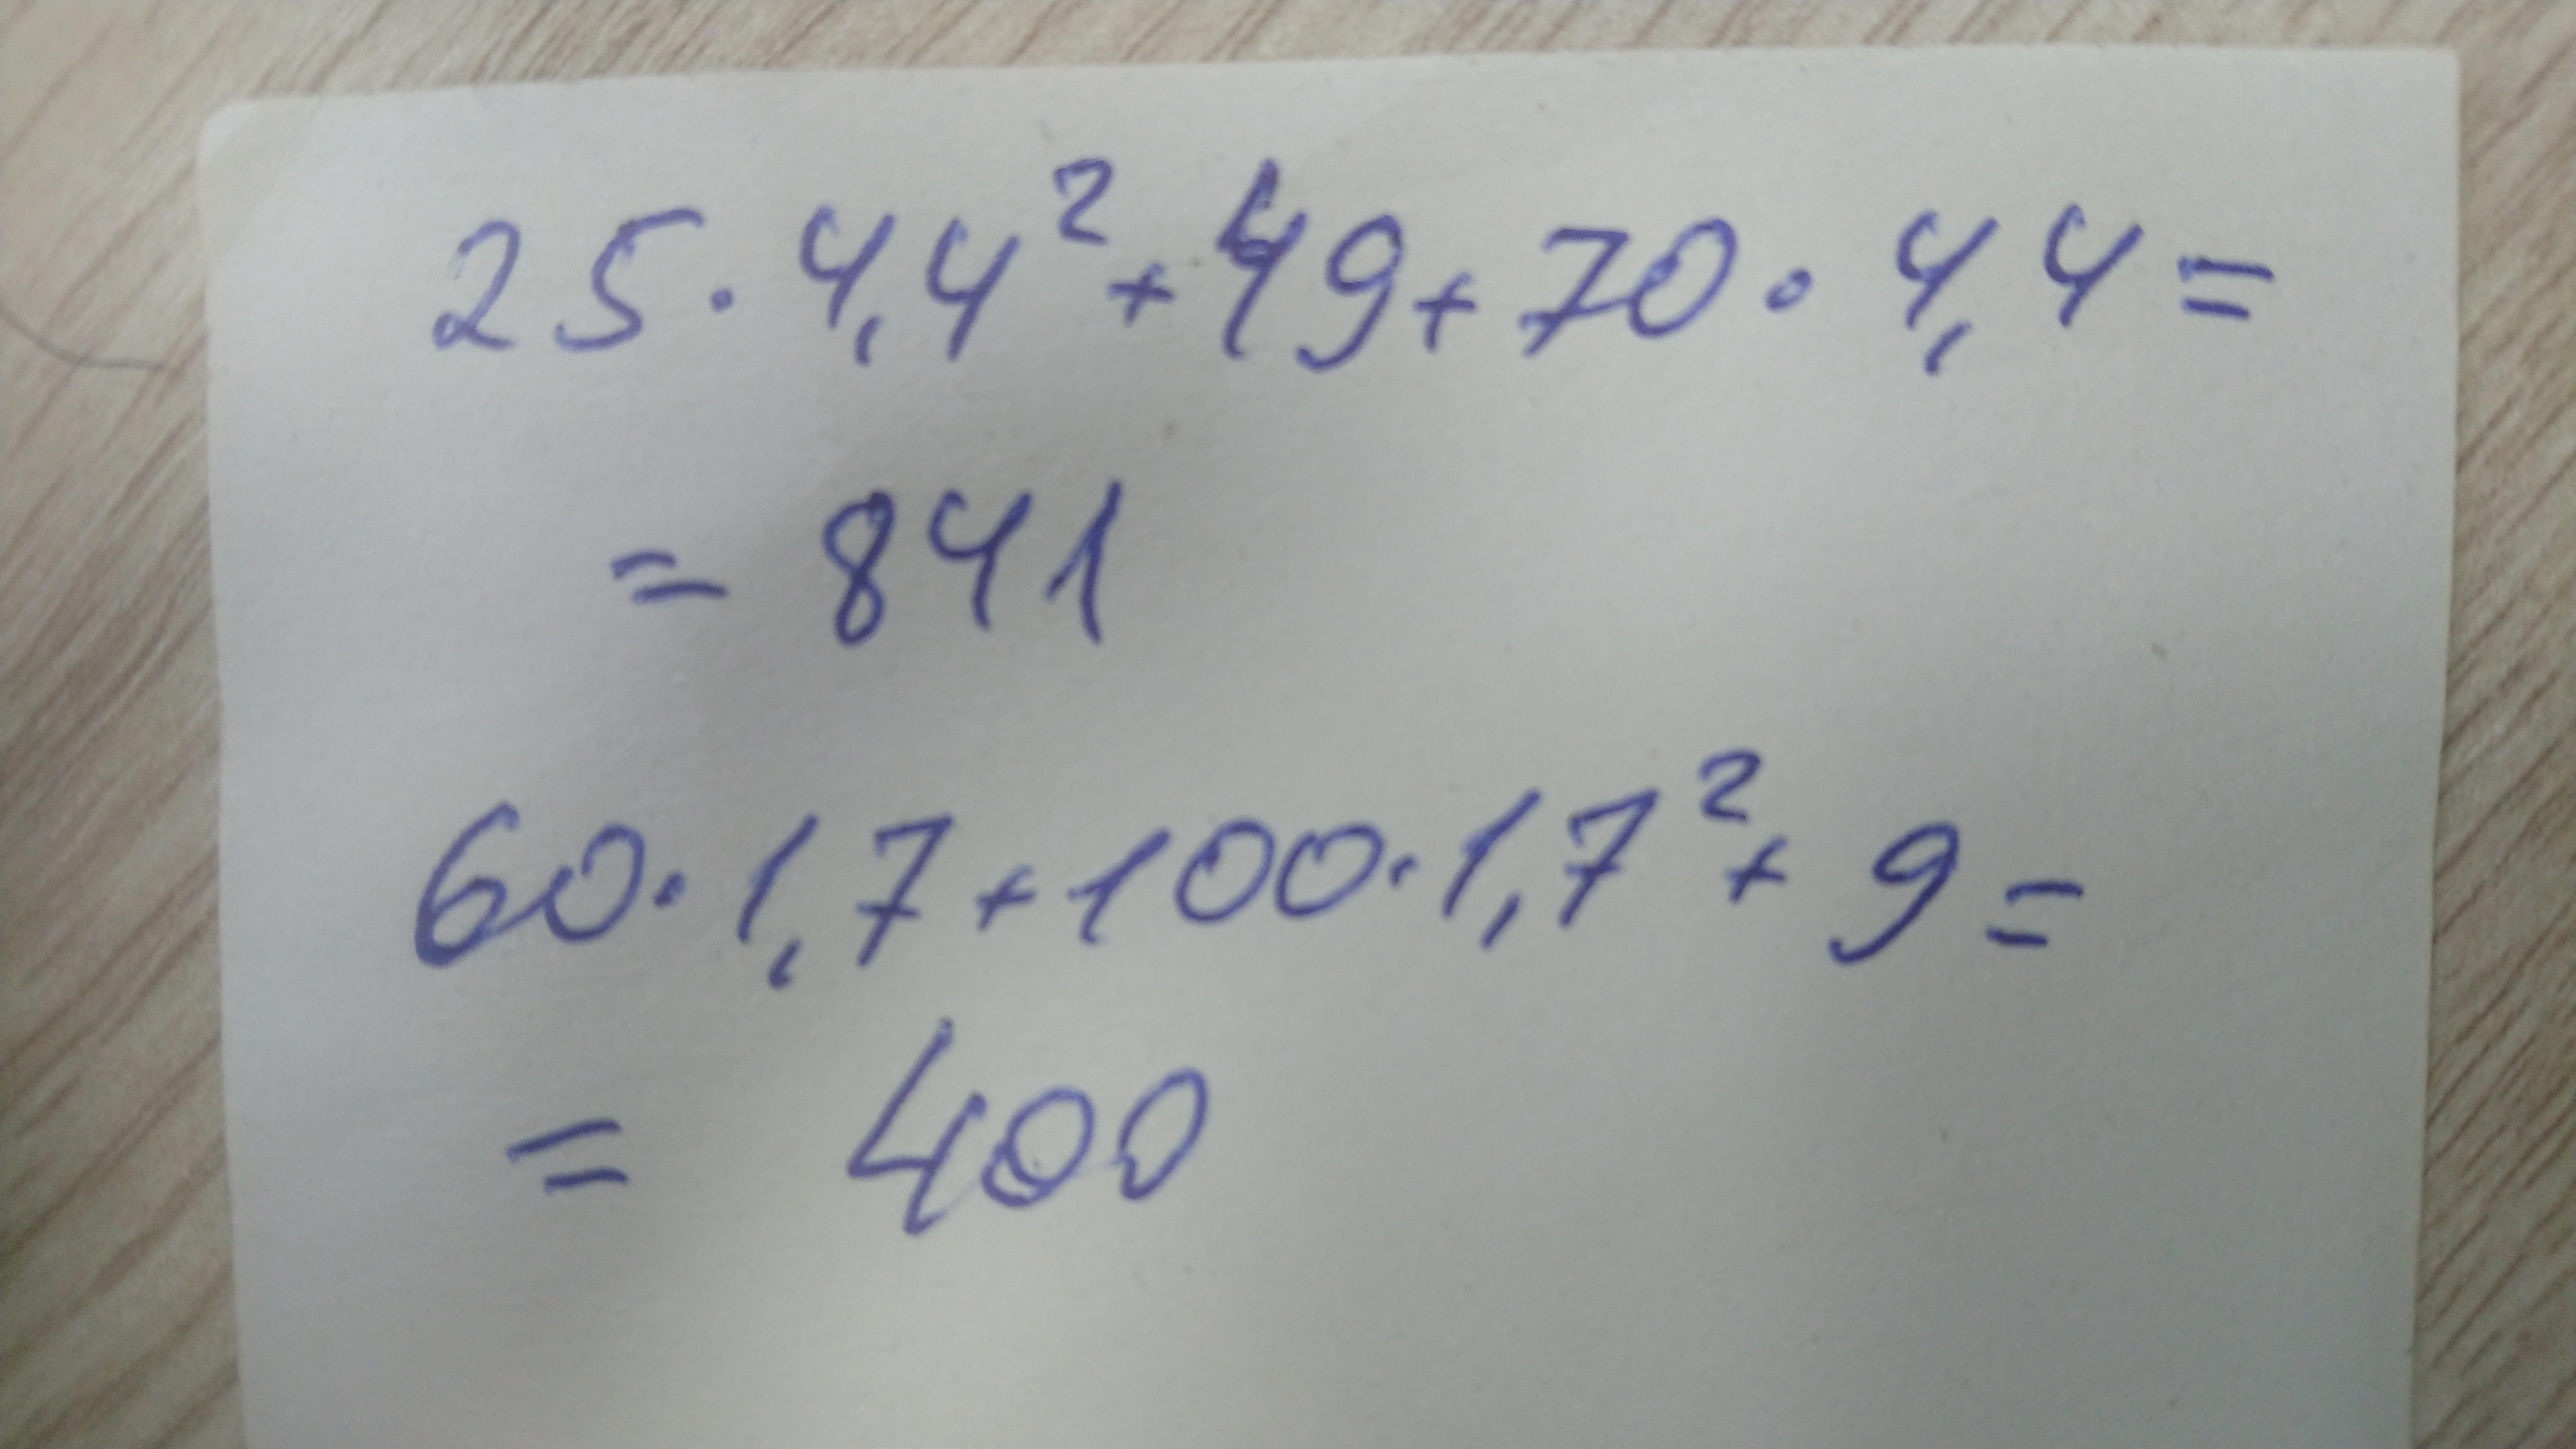 25·4,4²+49+70·4,4=
=841
60·1,7+100·1,7²+9=
=400